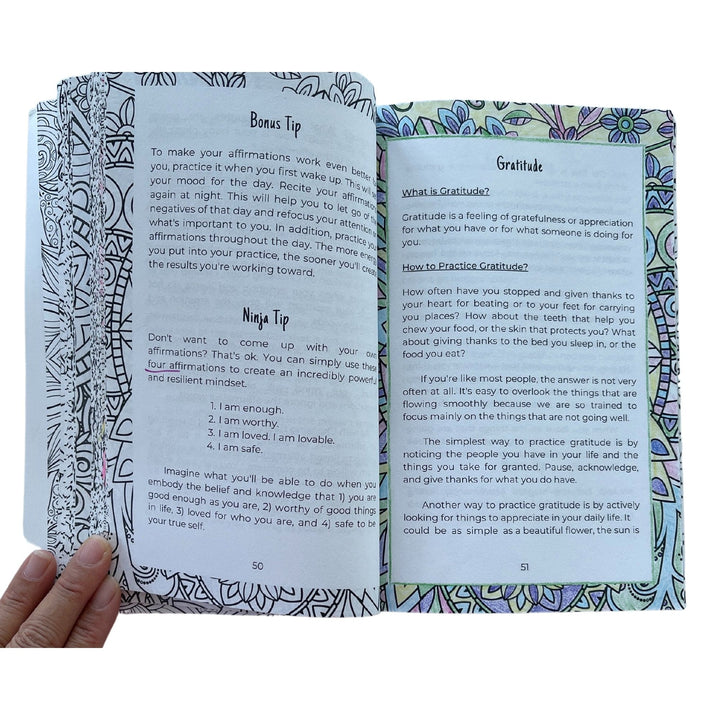 Bonus Tip
To make your affirmations work even better
you, practice it when you first wake up. This will
your mood for the day. Recite your affirmations
again at night. This will help you to let go of
negatives of that day and refocus your attention
what's important to you. In addition, practice your
affirmations throughout the day. The more energy
you put into your practice, the sooner you'll create
the results you're working toward.
Ninja Tip
Don't want to come up with your own
affirmations? That's ok. You can simply use these
four affirmations to create an incredibly powerful
and resilient mindset.
1. I am enough.
2. I am worthy.
3. I am loved. I am lovable.
4. I am safe.
Imagine what you'll be able to do when you
embody the belief and knowledge that 1) you are
good enough as you are, 2) worthy of good things
in life, 3) loved for who you are, and 4) safe to be
your true self.
50
Gratitude
What is Gratitude?
Gratitude is a feeling of gratefulness or appreciation
for what you have or for what someone is doing for
you.
How to Practice Gratitude?
How often have you stopped and given thanks to
your heart for beating or to your feet for carrying
you places? How about the teeth that help you
chew your food, or the skin that protects you? What
about giving thanks to the bed you sleep in, or the
food you eat?
If you're like most people, the answer is not very
often at all. It's easy to overlook the things that are
flowing smoothly because we are so trained to
focus mainly on the things that are not going well.
The simplest way to practice gratitude is by
noticing the people you have in your life and the
things you take for granted. Pause, acknowledge,
and give thanks for what you do have.
Another way to practice gratitude is by actively
looking for things to appreciate in your daily life. It
could be as simple as a beautiful flower, the sun is
51